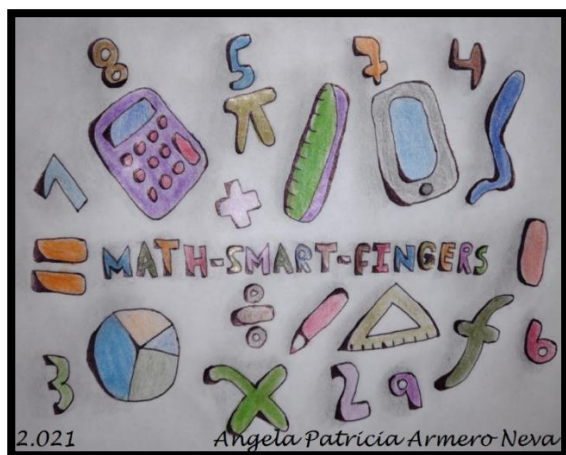 8 5 7 4
π
+
= MATH-SMART-FINGERS
÷
3 x 2 9 f 6
2.021 Angela Patricia Armero Neva